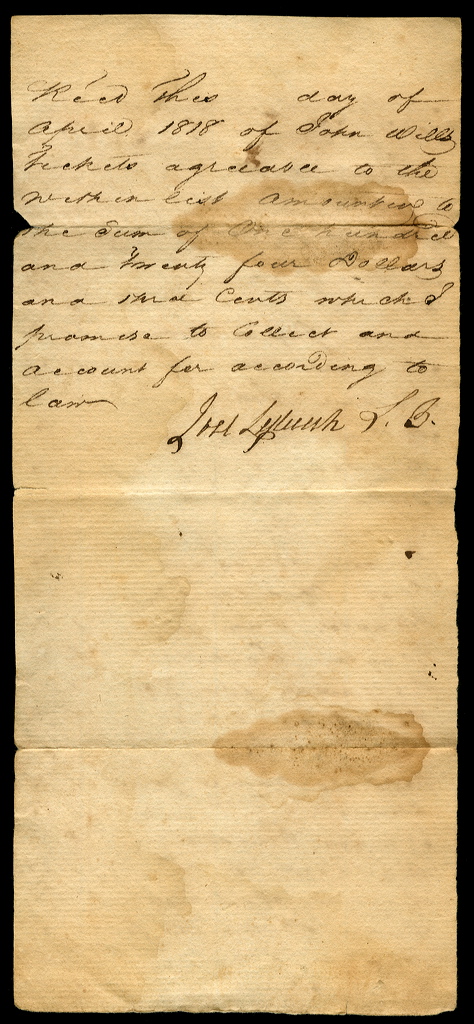 Rec'd This day of
April 1818 of John Wills
Tickets agreeable to the
within list amounting to
the Sum of One hundred
and Twenty four Dollars
and three Cents which I
promise to Collect and
account for according to
law